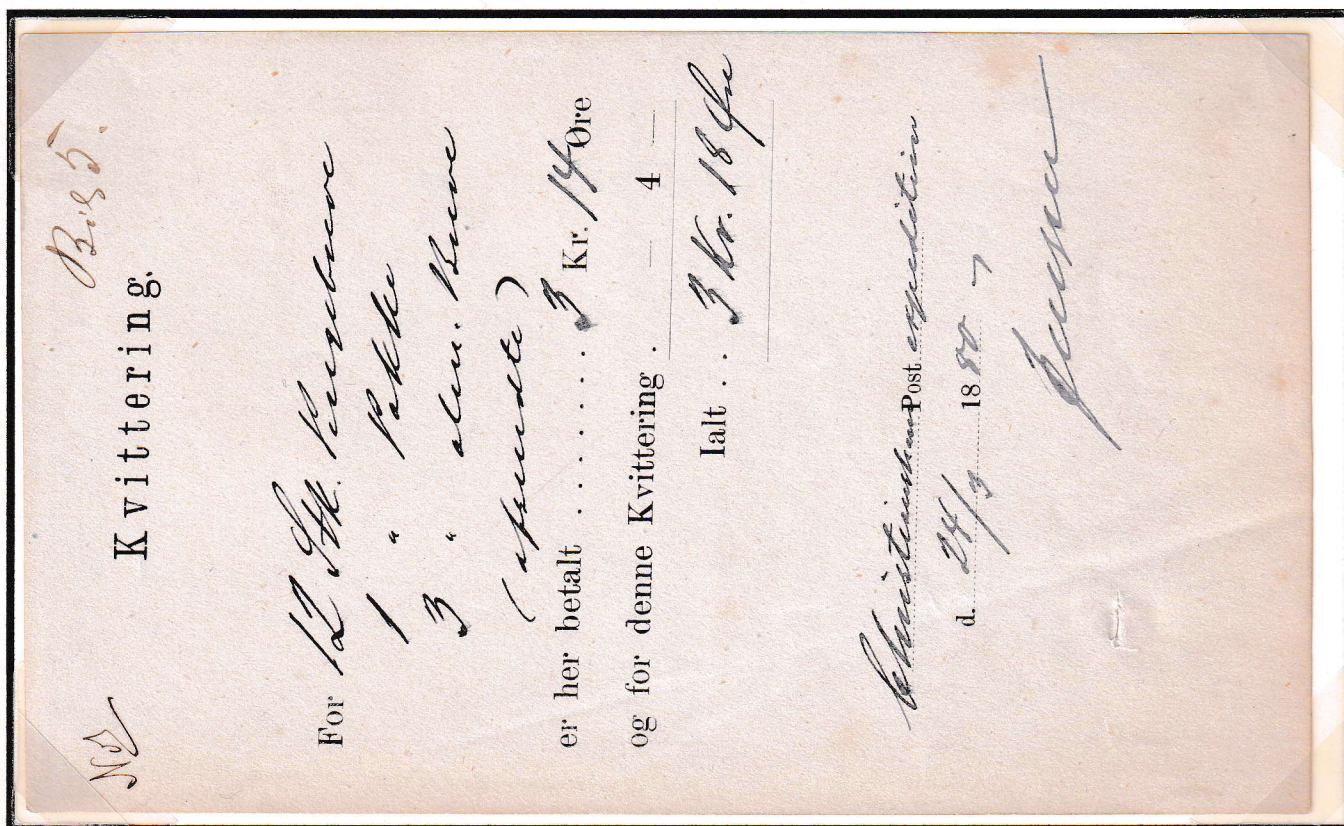 No 2
Bil 5.
Kvittering.
For 12 Stk. Pengebreve
1 " Pakke
3 " alm. Breve
(afsendte)
er her betalt . . . . . . . 3 Kr. 14 Øre
og for denne Kvittering . — 4 —
Ialt . . 3 Kr. 18 Øre
Christianshavns Postexpedition
d. 24/3 1880